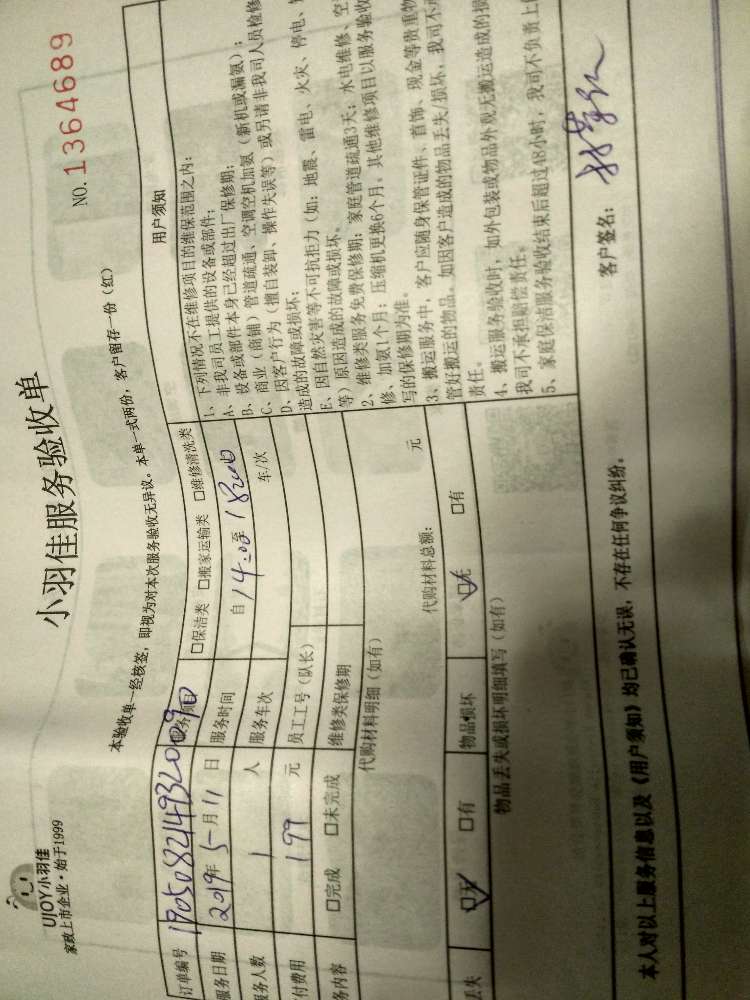 UJOY小羽佳
家政上市企业·始于1999
小羽佳服务验收单
NO.1364689
本验收单一经核签，即视为对本次服务验收无异议。本单一式两份，客户留存一份（红）
订单编号 190508214932009
服务项目 □保洁类 □搬家运输类 □维修清洗类
服务日期 2019年5月11日
服务时间 自14:00至18:00
服务人数 1 人
服务车次 车/次
付费用 199 元
员工工号（队长）
务内容 □完成 □未完成
维修类保修期
代购材料明细（如有）
代购材料总额： 元
丢失 ☑无 □有
物品损坏 ☑无 □有
物品丢失或损坏明细填写（如有）
用户须知
1、下列情况不在维修项目的维保范围之内：
A、非我司员工提供的设备或部件；
B、设备或部件本身已经超过出厂保修期；
C、商业（商铺）管道疏通、空调空机加氨（新机或漏氨）；
D、因客户行为（擅自装卸、操作失误等）或另请非我司人员检修
造成的故障或损坏；
E、因自然灾害等不可抗拒力（如：地震、雷电、火灾、停电、
等）原因造成的故障或损坏。
2、维修类服务免费保修期：家庭管道疏通3天；水电维修、空
修、加氨1个月；压缩机更换6个月。其他维修项目以服务验收
写的保修期为准。
3、搬运服务中，客户应随身保管证件、首饰、现金等贵重物
管好搬运的物品。如因客户造成的物品丢失/损坏，我司不
责任。
4、搬运服务验收时，如外包装或物品外观无搬运造成的损
我司不承担赔偿责任。
5、家庭保洁服务验收结束后超过48小时，我司不负责上
本人对以上服务信息以及《用户须知》均已确认无误，不存在任何争议纠纷。
客户签名：